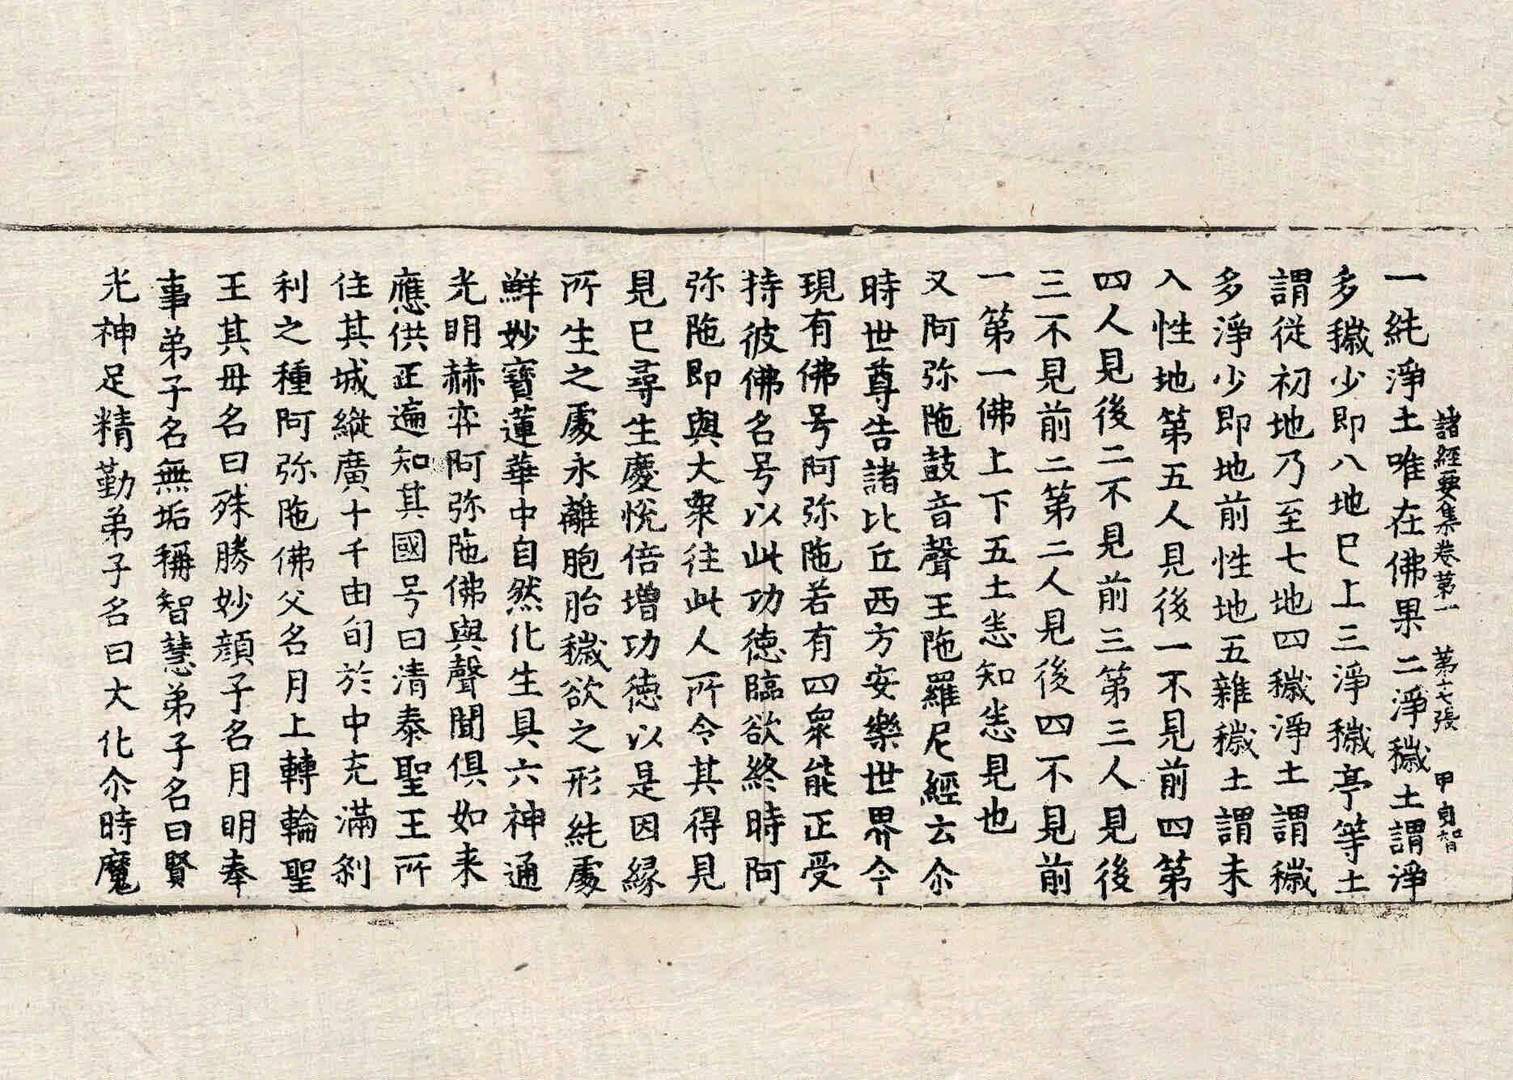 諸經要集卷第一　第十七張　甲
一純淨土唯在佛果二淨穢土謂淨
多穢少即八地巳上三淨穢亭等土
謂従初地乃至七地四穢淨土謂穢
多淨少即地前性地五雜穢土謂未
入性地第五人見後一不見前四第
四人見後二不見前三第三人見後
三不見前二第二人見後四不見前
一第一佛上下五土悉知悉見也
又阿弥陁鼓音聲王陁羅尼經云尒
時世尊告諸比丘西方安樂世界今
現有佛号阿弥陁若有四衆能正受
持彼佛名号以此功徳臨欲終時阿
弥陁即與大衆往此人所令其得見
見巳尋生慶悅倍增功徳以是因緣
所生之處永離胞胎穢欲之形純處
鮮妙寶蓮華中自然化生具六神通
光明赫弈阿弥陁佛與聲聞俱如来
應供正遍知其國号曰清泰聖王所
住其城縱廣十千由旬於中充滿刹
利之種阿弥陁佛父名月上轉輪聖
王其母名曰殊勝妙顔子名月明奉
事弟子名無垢稱智慧弟子名曰賢
光神足精勤弟子名曰大化尒時魔